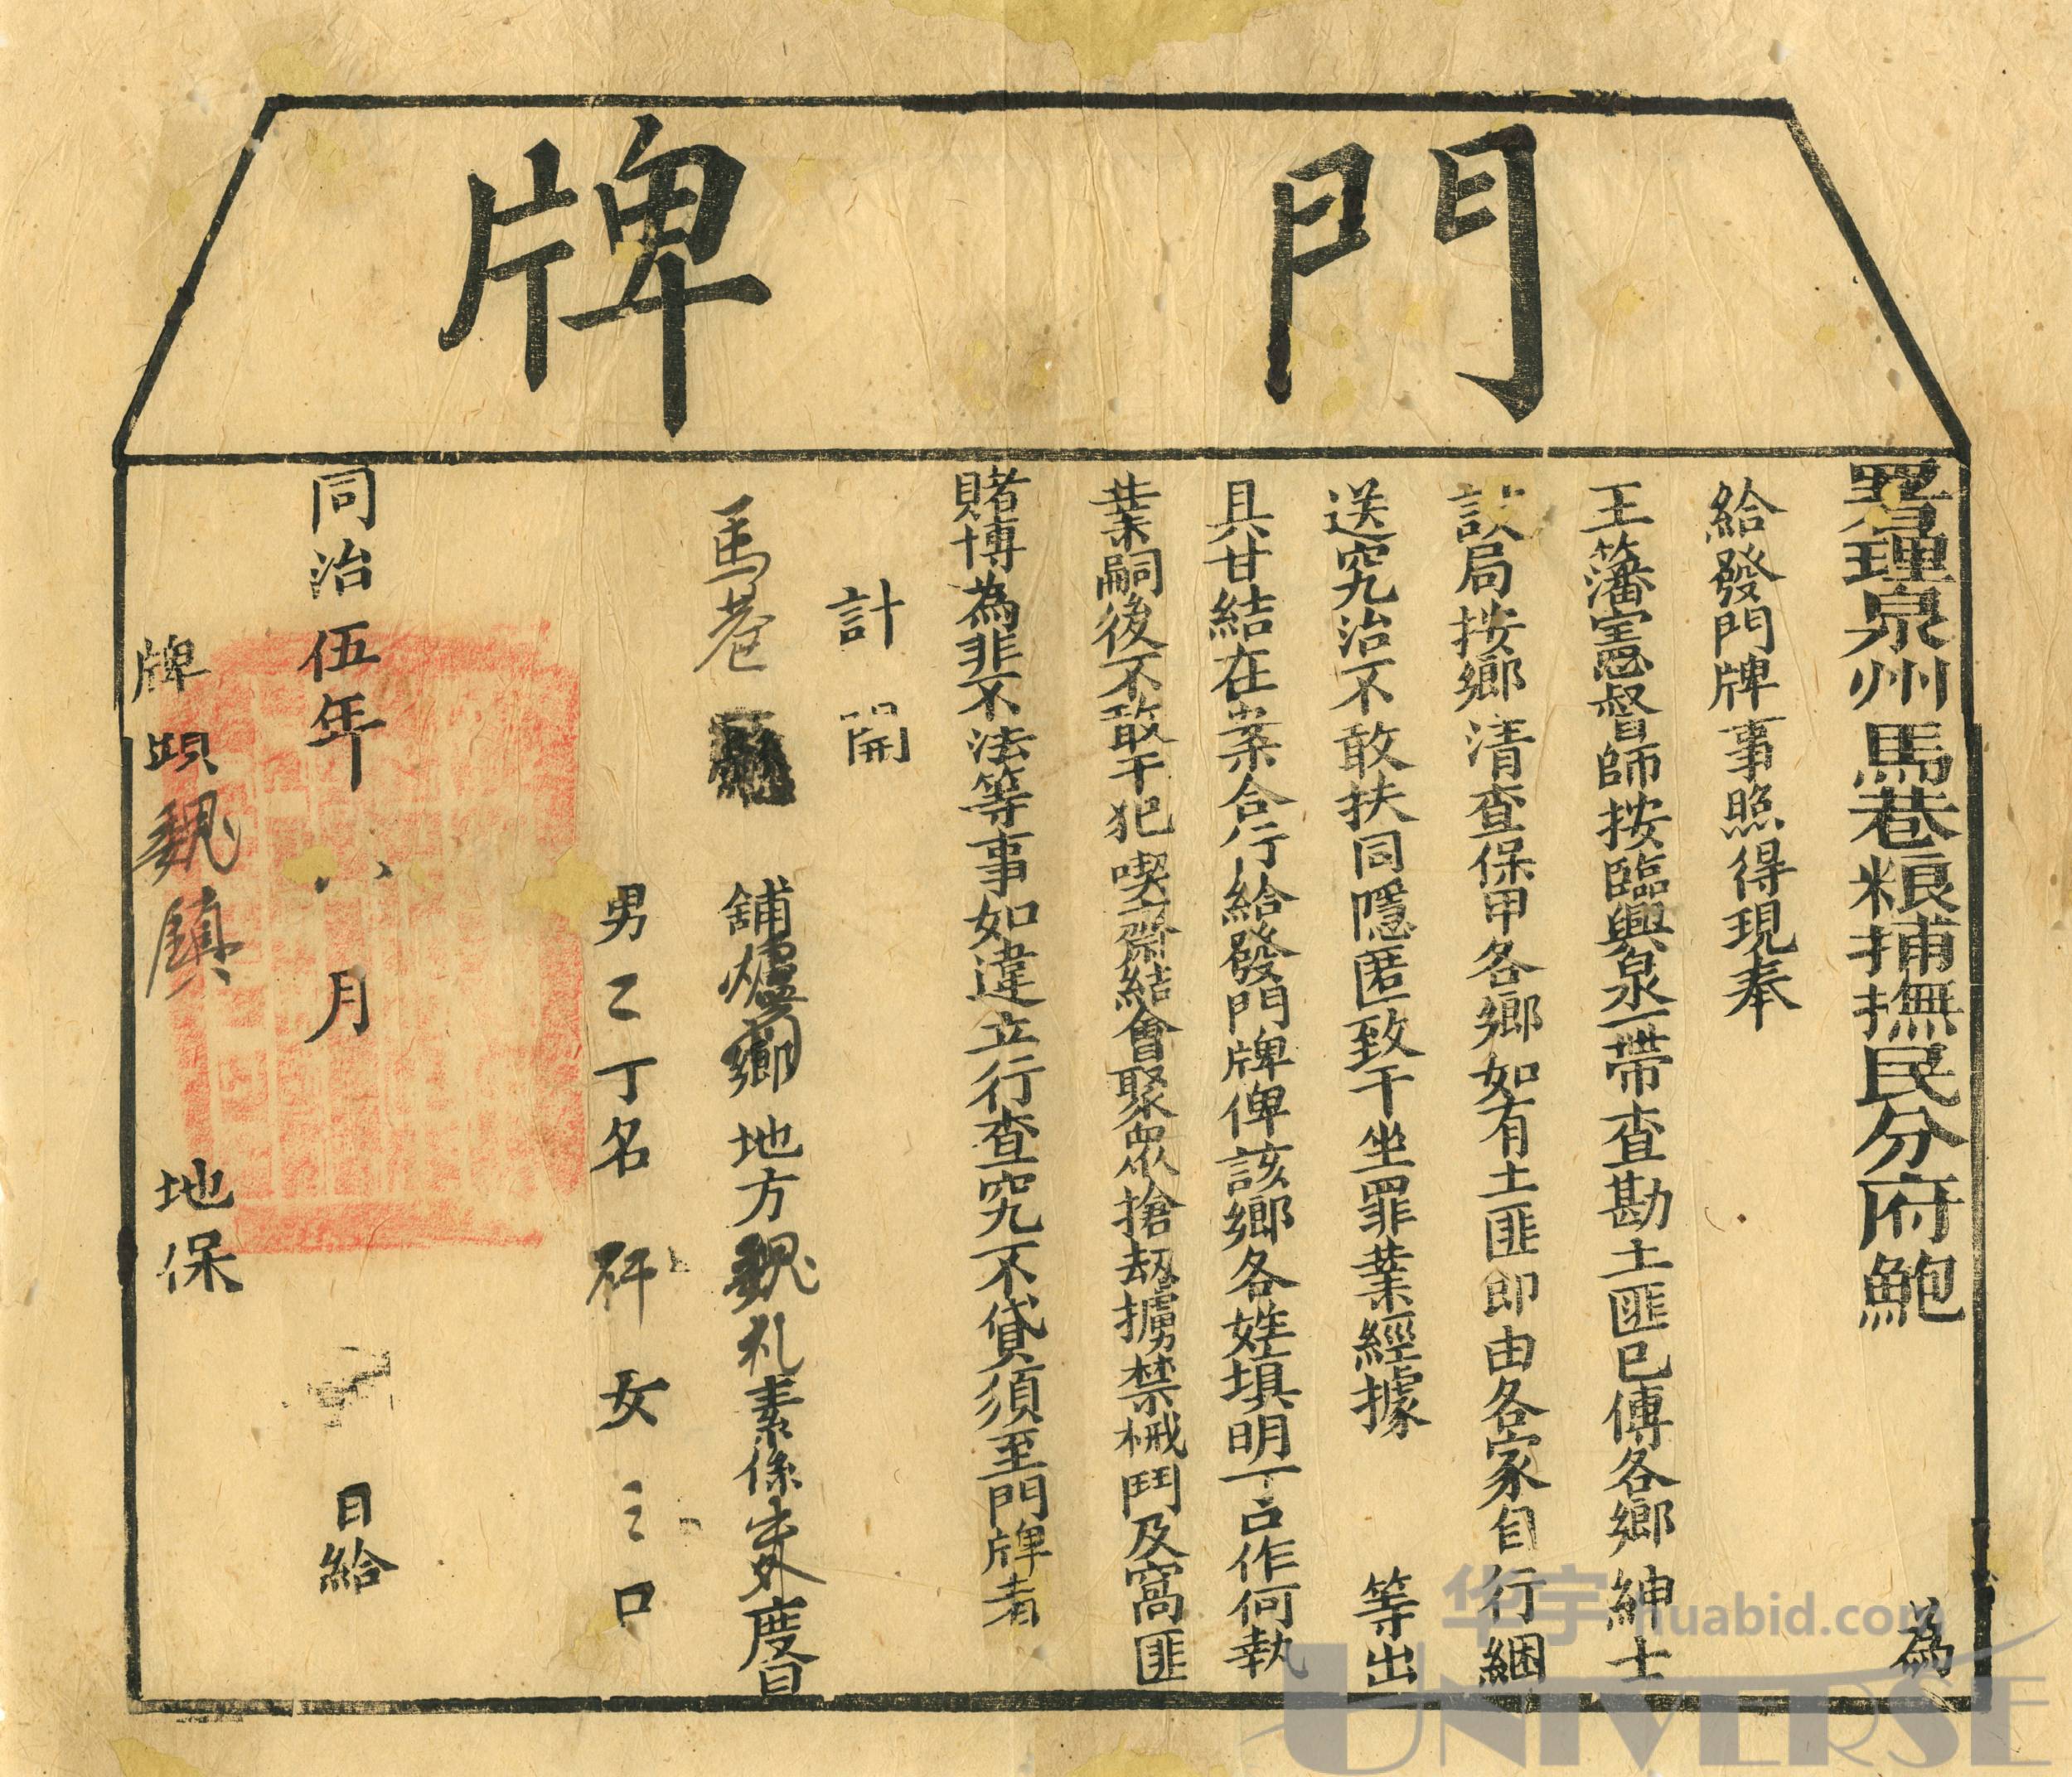 門牌
署理泉州馬巷粮捕撫民分府鮑 為
給發門牌事照得現奉
王藩憲督師按臨興泉一帶查勘土匪已傳各鄉紳士
設局按鄉清查保甲各鄉如有土匪即由各家自行綑
送究治不敢扶同隱匿致干坐罪業經據 等出
具甘結在案合行給發門牌俾該鄉各姓填明丁口作何執
業嗣後不敢干犯喫齋結會聚眾搶刼擄禁械鬥及窩匪
賭博為非不法等事如違立行查究不貸須至門牌者
計開
馬巷 舖 鄉地方魏札素係 度日
男乙丁名 女三口
同治伍年八月 日給
牌頭魏鎮 地保
华宇 huabid.com
UNIVERSE